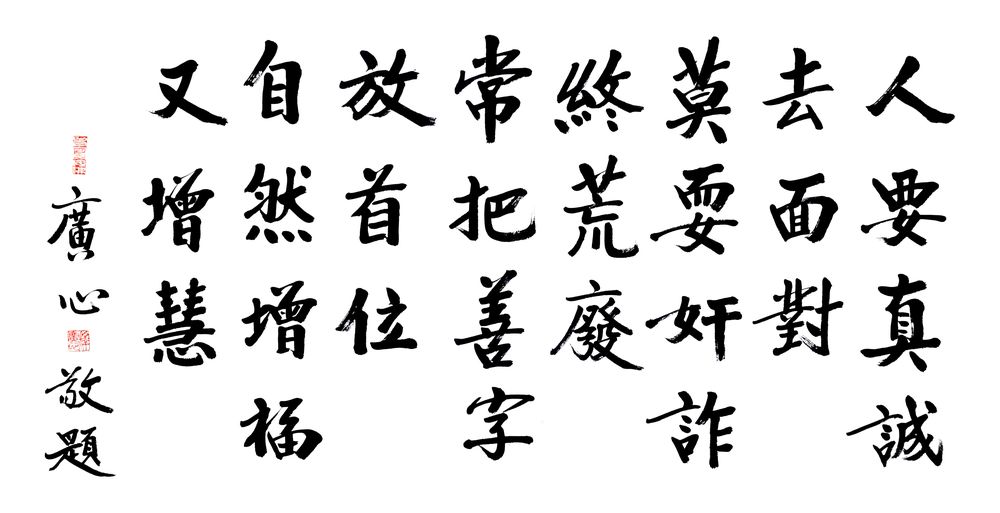 人要真誠
去面對
莫耍奸詐
終荒廢
常把善字
放首位
自然增福
又增慧
廣心敬題